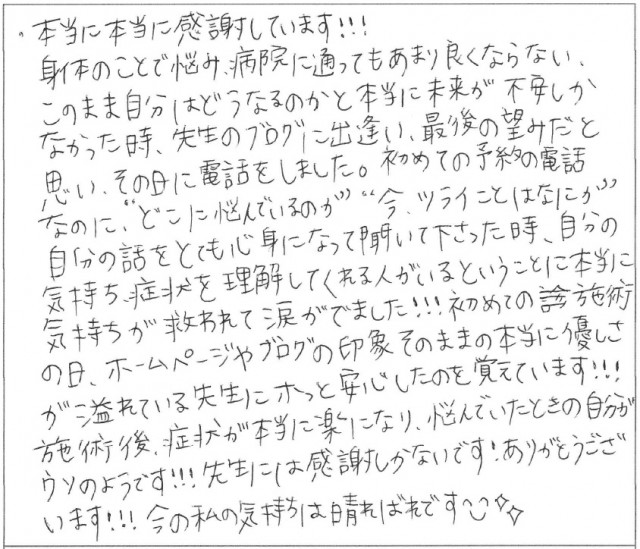 ・本当に本当に感謝しています!!!
身体のことで悩み、病院に通ってもあまり良くならない、
このまま自分はどうなるのかと本当に未来が不安しか
なかった時、先生のブログに出逢い、最後の望みだと
思い、その日に電話をしました。初めての予約の電話
なのに、“どこに悩んでいるのか”“今、ツライことはなにか”
自分の話をとても心身になって聞いて下さった時、自分の
気持ち、症状を理解してくれる人がいるということに本当に
気持ちが救われて涙がでました!!!初めての診施術
の日、ホームページやブログの印象そのままの本当に優しさ
が溢れている先生にホッと安心したのを覚えています!!!
施術後、症状が本当に楽になり、悩んでいたときの自分が
ウソのようです!!!先生には感謝しかないです!ありがとうござ
います!!!今の私の気持ちは晴ればれです